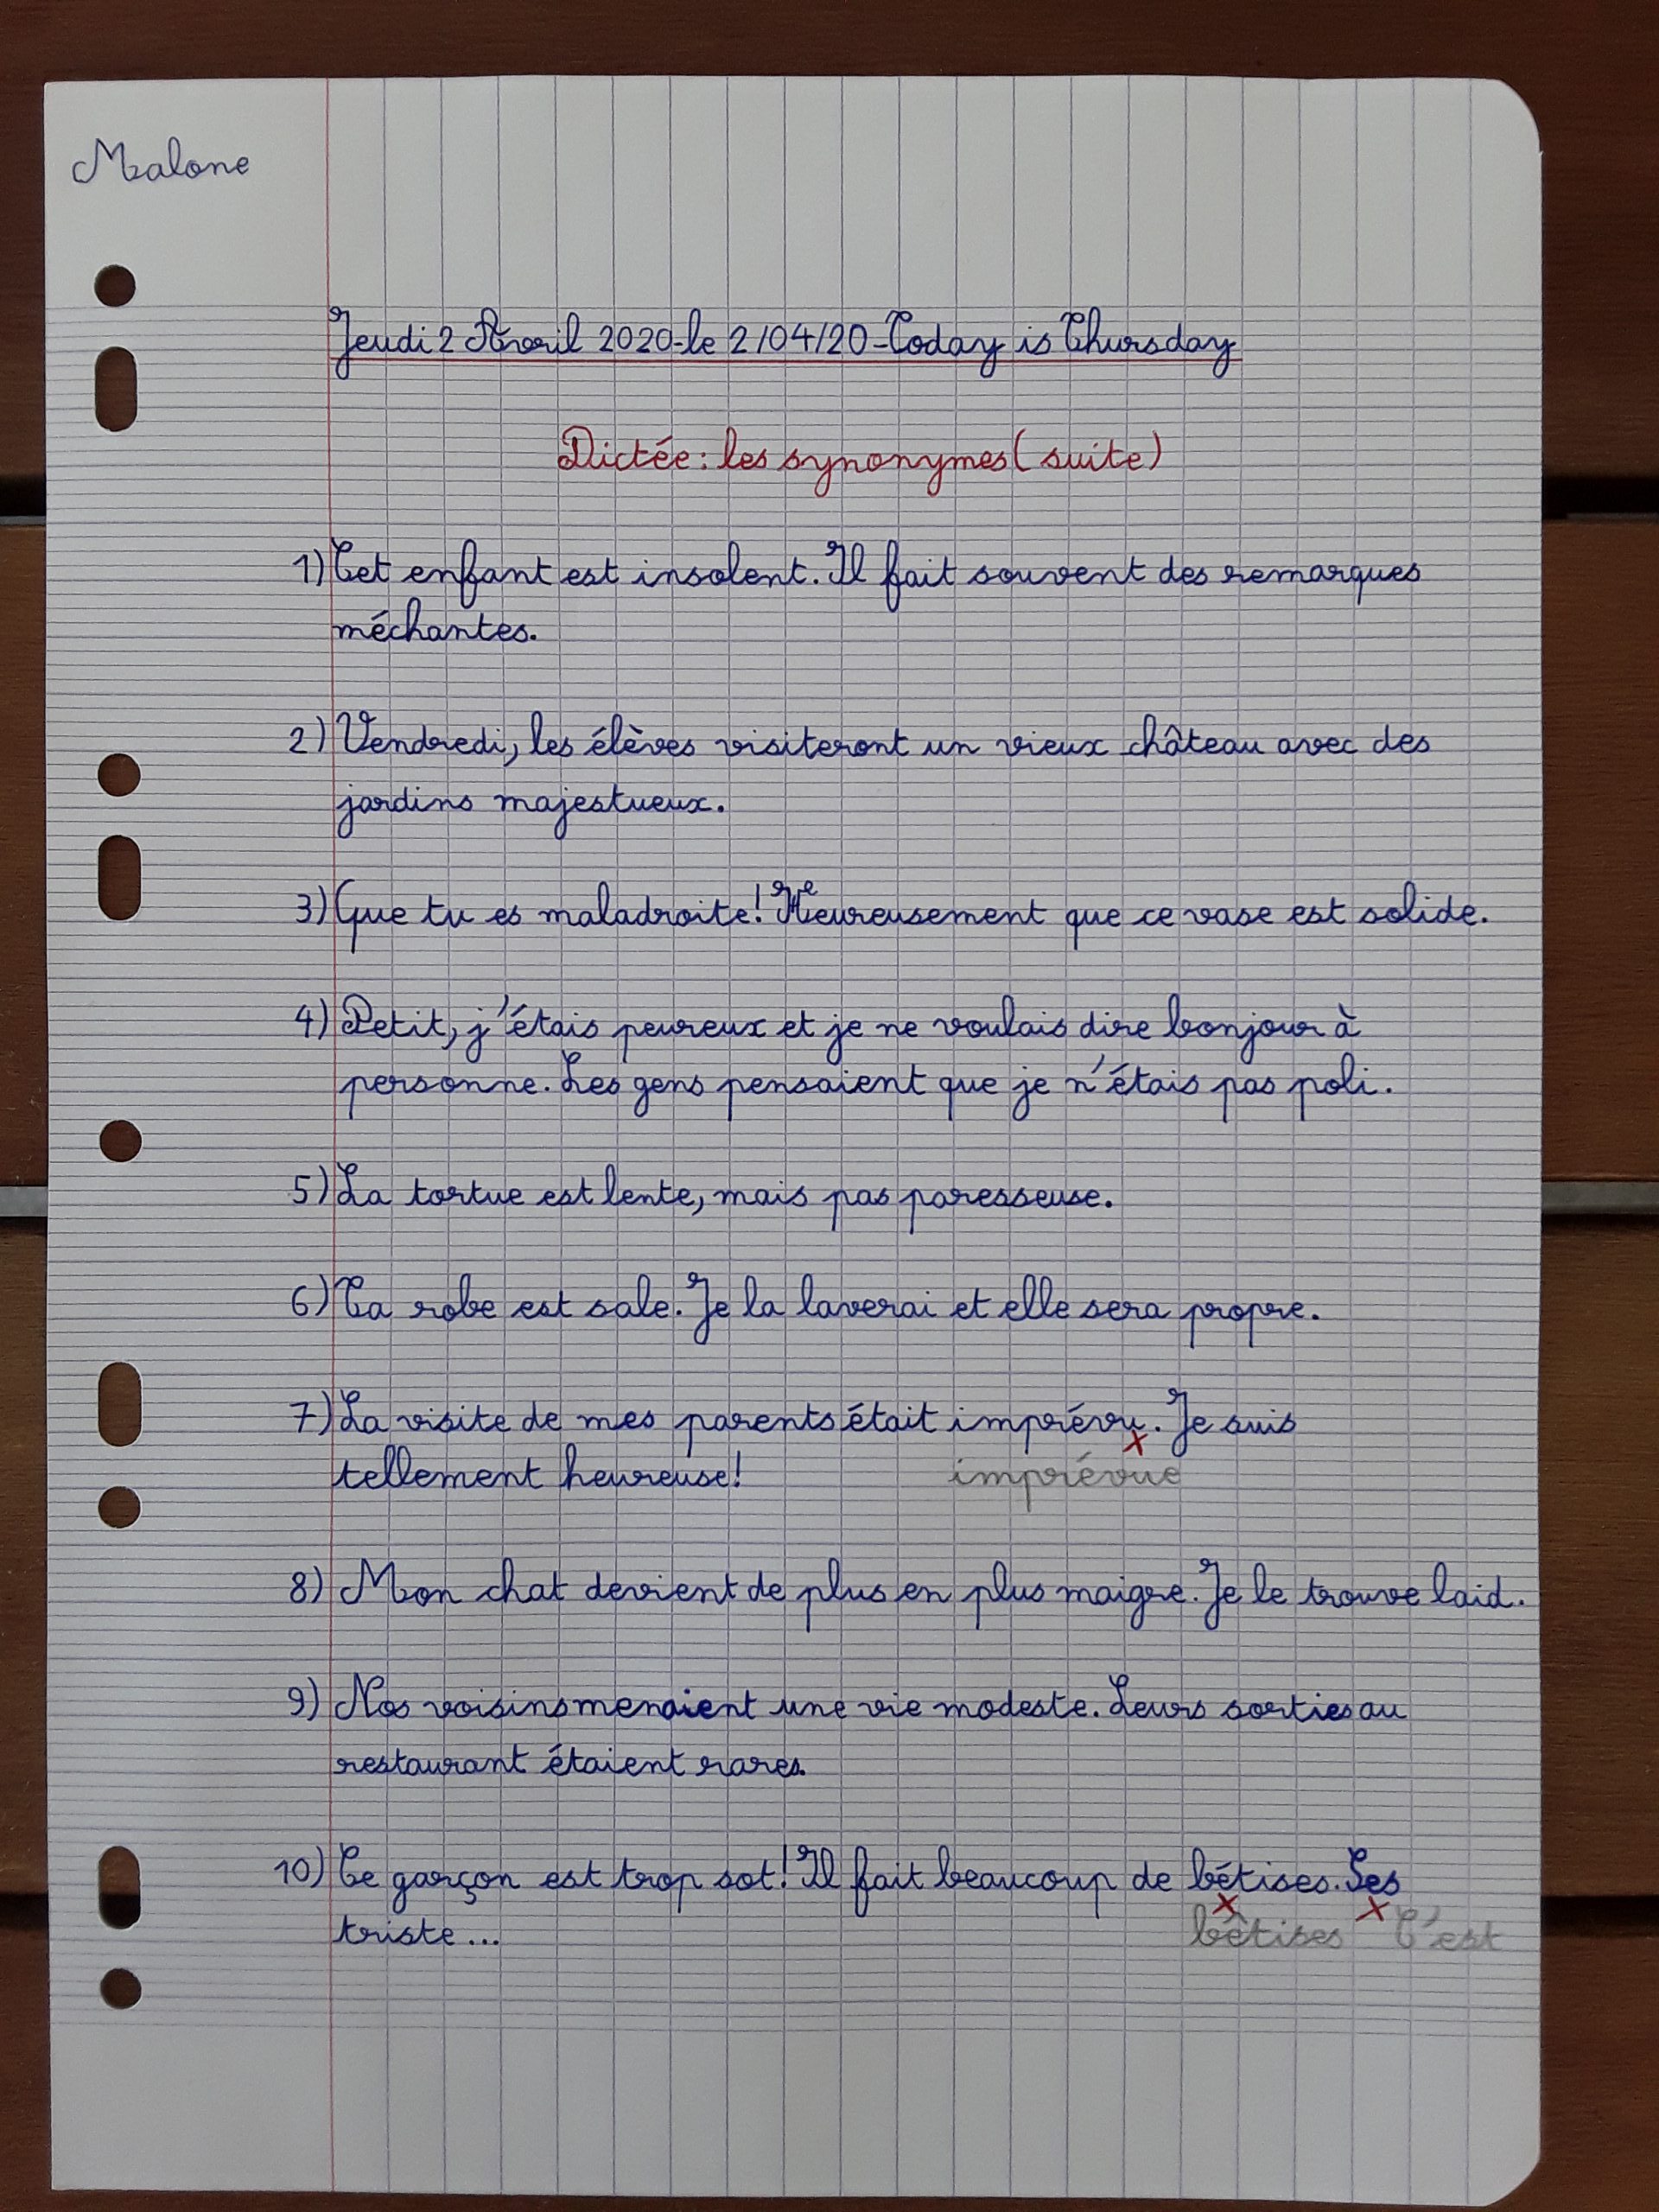 Malone
Jeudi 2 Avril 2020-le 2/04/20-Today is Thursday
Dictée: les synonymes (suite)
1) Cet enfant est insolent. Il fait souvent des remarques
méchantes.
2) Vendredi, les élèves visiteront un vieux château avec des
jardins majestueux.
3) Que tu es maladroite! Heureusement que ce vase est solide.
4) Petit, j'étais peureux et je ne voulais dire bonjour à
personne. Les gens pensaient que je n'étais pas poli.
5) La tortue est lente, mais pas paresseuse.
6) Ta robe est sale. Je la laverai et elle sera propre.
7) La visite de mes parents était imprévu. Je suis
x
tellement heureuse! imprévue
8) Mon chat devient de plus en plus maigre. Je le trouve laid.
9) Nos voisins menaient une vie modeste. Leurs sorties au
restaurant étaient rares.
10) Ce garçon est trop sot! Il fait beaucoup de bétises. Ses
x x
triste... bêtises C'est